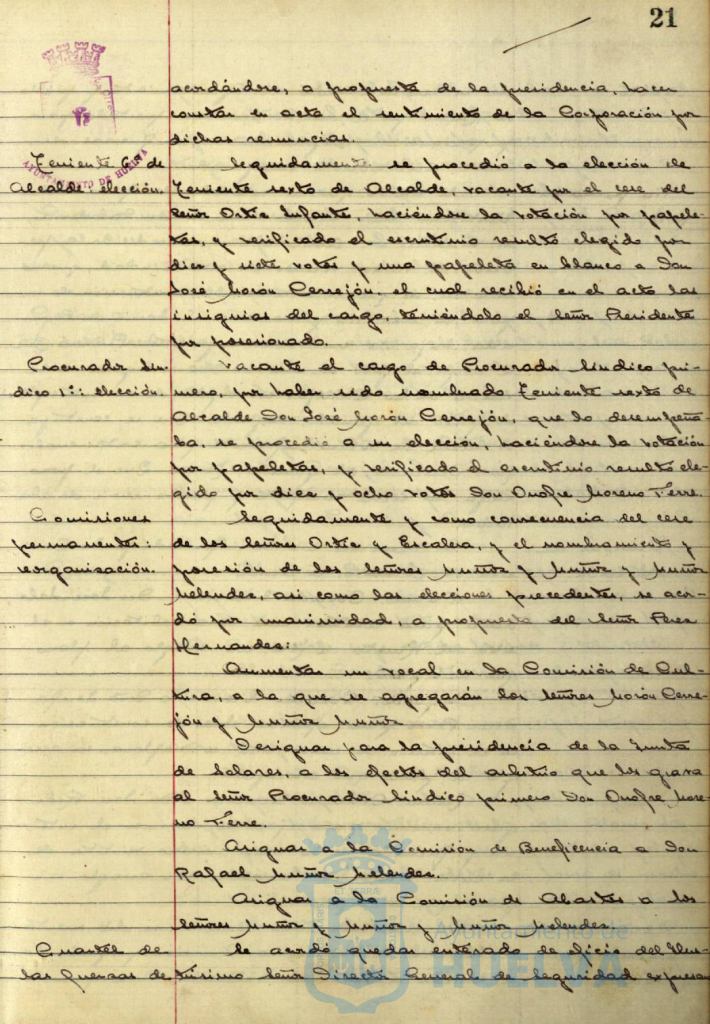 21
acordándose, a propuesta de la presidencia, hacer
constar en acta el sentimiento de la Corporación por
dichas renuncias.
Teniente 6º de
Alcalde: elección.
AYUNTAMIENTO DE HUELVA
Seguidamente se procedió a la elección de
Teniente sexto de Alcalde, vacante por el cese del
Señor Ortiz Infante, haciéndose la votación por papele-
tas, y verificado el escrutinio resultó elegido por
diez y siete votos y una papeleta en blanco a Don
José Morón Cerrejón, el cual recibió en el acto las
insignias del cargo, teniéndolo el Señor Presidente
por posesionado.
Procurador Sín-
dico 1º: elección.
Vacante el cargo de Procurador Síndico pri-
mero, por haber sido nombrado Teniente sexto de
Alcalde Don José Morón Cerrejón, que lo desempeña-
ba, se procedió a su elección, haciéndose la votación
por papeletas, y verificado el escrutinio resultó ele-
gido por diez y ocho votos Don Onofre Moreno Ferre.
Comisiones
permanentes:
reorganización.
Seguidamente y como consecuencia del cese
de los Señores Ortiz y Escalera, y el nombramiento y
posesión de los Señores Muñoz y Muñoz y Muñoz
Melendez, asi como las elecciones precedentes, se acor-
dó por unanimidad, a propuesta del Señor Perez
Hernandez:
Aumentar un vocal en la Comisión de Cul-
tura, a la que se agregarán los Señores Morón Cerre-
jón y Muñoz Muñoz
Designar para la presidencia de la Junta
de Solares, a los efectos del arbitrio que los grava
al Señor Procurador Síndico primero Don Onofre More-
no Ferre.
Asignar a la Comisión de Beneficencia a Don
Rafael Muñoz Melendez.
Asignar a la Comisión de Abastos a los
Señores Muñoz y Muñoz y Muñoz Melendez.
Cuartel de
las fuerzas de
Se acordó quedar enterado de oficio del Ilus-
trísimo Señor Director General de Seguridad expresan
HUELVA